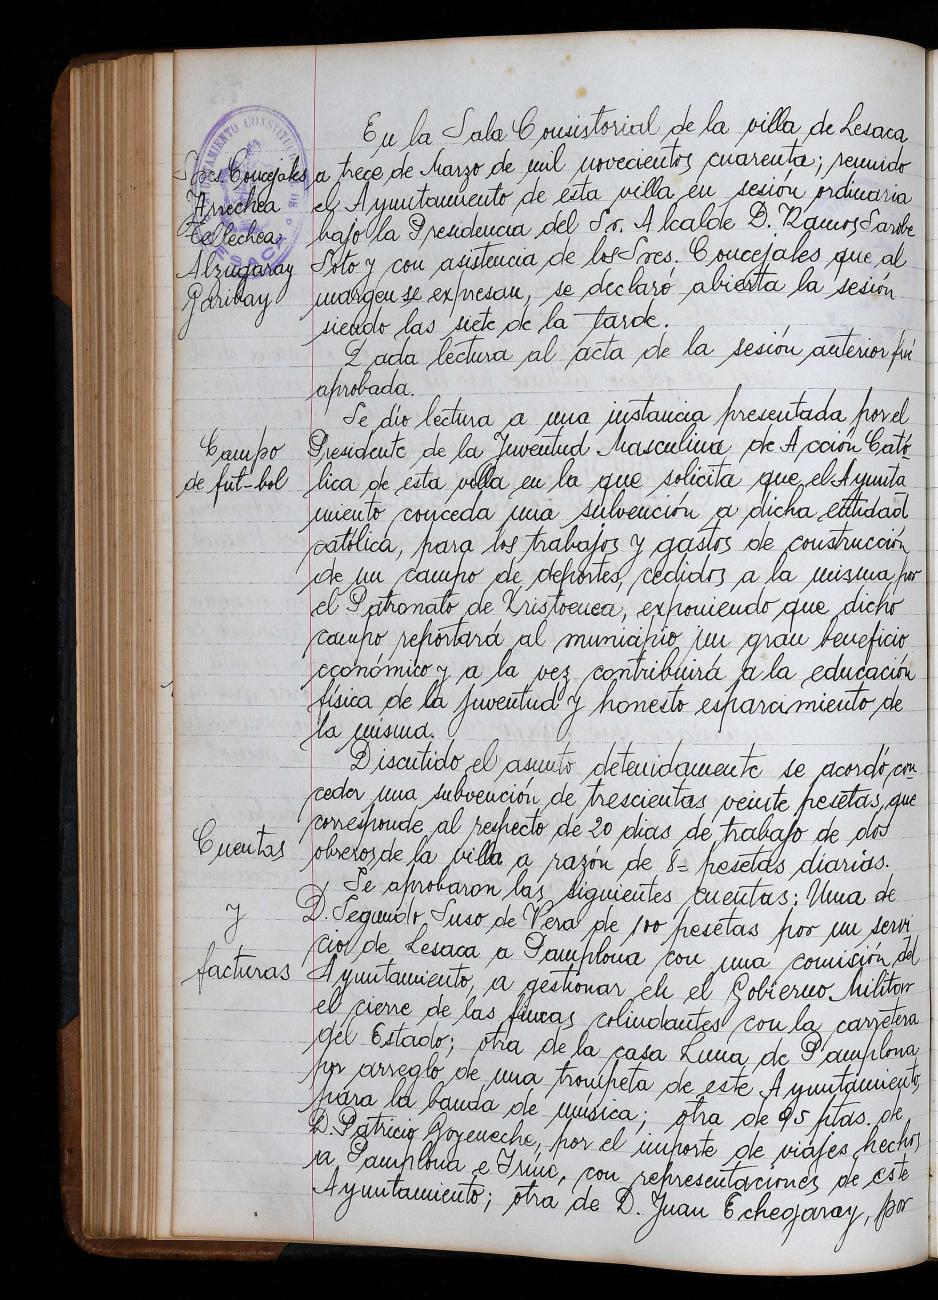 En la Sala Consistorial de la villa de Lesaca
a trece de Marzo de mil novecientos cuarenta; reunido
el Ayuntamiento de esta villa en sesión ordinaria
bajo la Presidencia del Sr. Alcalde D. Ramos Sarobe
Soto y con asistencia de los Sres. Concejales que al
margen se expresan, se declaro abierta la sesión
siendo las siete de la tarde.
Sres. Concejales
Arrechea
Tellechea
Alzugaray
Garibay
Dada lectura al acta de la sesión anterior fué
aprobada.
Campo
de fut-bol
Se dio lectura a una instancia presentada por el
Presidente de la Juventud Masculina de Acción Cató-
lica de esta villa en la que solicita que el Ayunta
miento conceda una subvención a dicha entidad
católica, para los trabajos y gastos de construcción
de un campo de deportes, cedidos a la misma por
el Patronato de Kristoenea, exponiendo que dicho
campo reportará al municipio un gran beneficio
económico y a la vez contribuirá a la educación
física de la juventud y honesto esparcimiento de
la misma.
Discutido el asunto detenidamente se acordó con-
ceder una subvención de trescientas veinte pesetas, que
corresponde al respecto de 20 dias de trabajo de dos
obreros de la villa a razón de 8= pesetas diarias.
Cuentas
y
facturas
Se aprobaron las siguientes cuentas: Una de
D. Segundo Suso de Vera de 100 pesetas por un servi
cio de Lesaca a Pamplona con una comisión del
Ayuntamiento, a gestionar en el Gobierno Militar
el cierre de las fincas colindantes con la carretera
del Estado; otra de la casa Luna de Pamplona
por arreglo de una trompeta de este Ayuntamiento,
para la banda de música; otra de 95 ptas. de
D. Patricio Goyeneche, por el importe de viajes hechos
a Pamplona e Irun, con representaciones de este
Ayuntamiento; otra de D. Juan Echegaray, por